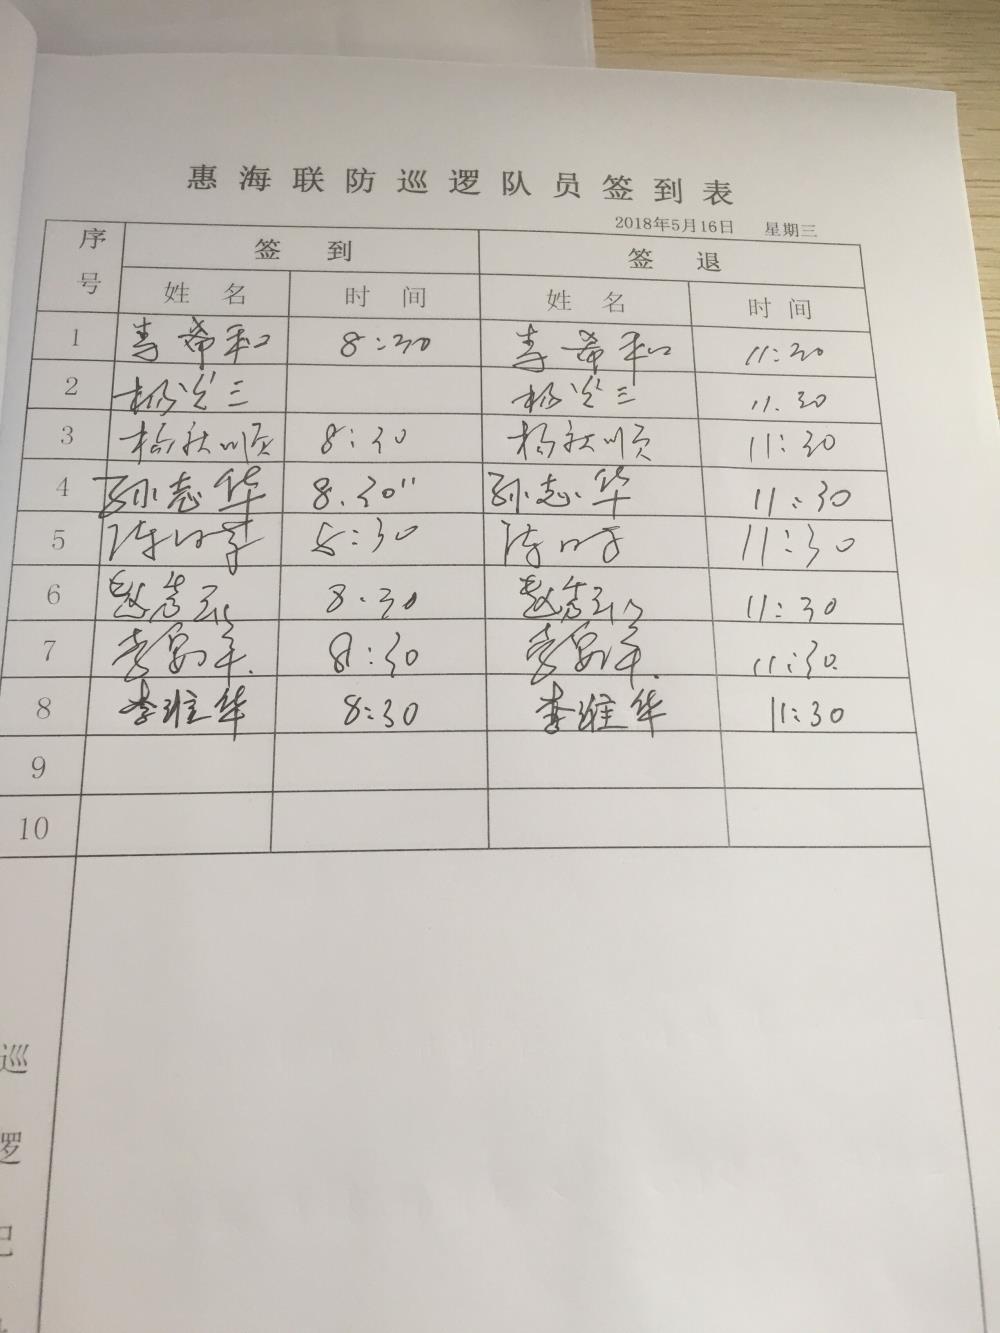 惠海联防巡逻队员签到表
2018年5月16日 星期三
序号 签到 签退
姓名 时间 姓名 时间
1 李希和 8:30 李希和 11:30
2 杨 三 杨 三 11.30
3 杨秋顺 8:30 杨秋顺 11:30
4 孙志华 8.30" 孙志华 11:30
5 陈 8:30 陈 11:30
6 赵 8.30 赵 11:30
7 李 军. 8:30 李 军. 11:30.
8 李维华 8:30 李维华 11:30
9
10
巡
逻
记